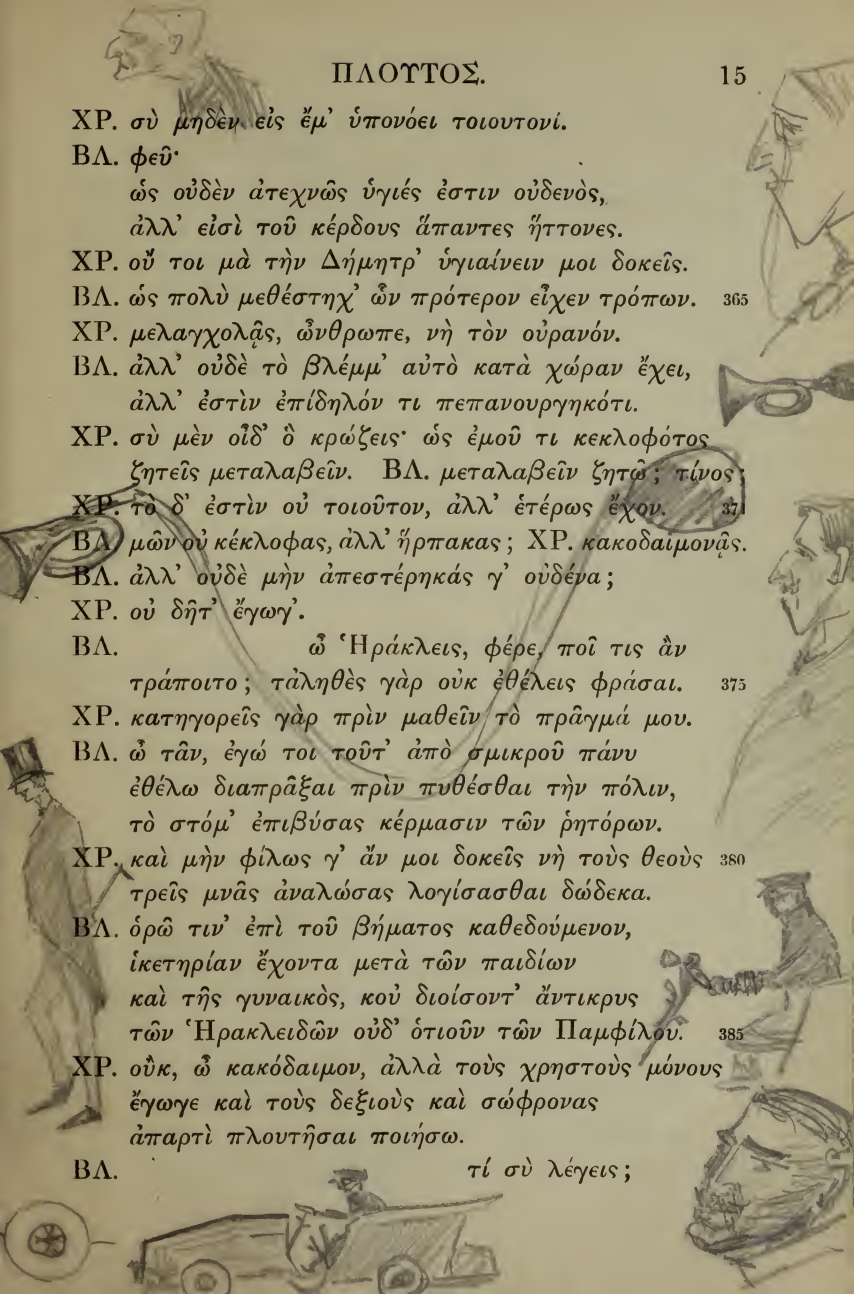 ΠΛΟΥΤΟΣ. 15
ΧΡ. σὺ μηδὲν εἰς ἔμ᾽ ὑπονόει τοιουτονί.
ΒΛ. φεῦ·
ὡς οὐδὲν ἀτεχνῶς ὑγιές ἐστιν οὐδενὸς,
ἀλλ᾽ εἰσὶ τοῦ κέρδους ἅπαντες ἥττονες.
ΧΡ. οὔ τοι μὰ τὴν Δήμητρ᾽ ὑγιαίνειν μοι δοκεῖς.
ΒΛ. ὡς πολὺ μεθέστηχ᾽ ὧν πρότερον εἶχεν τρόπων. 365
ΧΡ. μελαγχολᾷς, ὦνθρωπε, νὴ τὸν οὐρανόν.
ΒΛ. ἀλλ᾽ οὐδὲ τὸ βλέμμ᾽ αὐτὸ κατὰ χώραν ἔχει,
ἀλλ᾽ ἐστὶν ἐπίδηλόν τι πεπανουργηκότι.
ΧΡ. σὺ μὲν οἶδ᾽ ὃ κρώζεις· ὡς ἐμοῦ τι κεκλοφότος
ζητεῖς μεταλαβεῖν. ΒΛ. μεταλαβεῖν ζητῶ; τίνος;
ΧΡ. τὸ δ᾽ ἐστὶν οὐ τοιοῦτον, ἀλλ᾽ ἑτέρως ἔχον. 371
ΒΛ. μῶν οὐ κέκλοφας, ἀλλ᾽ ἥρπακας; ΧΡ. κακοδαιμονᾷς.
ΒΛ. ἀλλ᾽ οὐδὲ μὴν ἀπεστέρηκάς γ᾽ οὐδένα;
ΧΡ. οὐ δῆτ᾽ ἔγωγ᾽.
ΒΛ. ὦ Ἡράκλεις, φέρε, ποῖ τις ἂν
τράποιτο; τἀληθὲς γὰρ οὐκ ἐθέλεις φράσαι. 375
ΧΡ. κατηγορεῖς γὰρ πρὶν μαθεῖν τὸ πρᾶγμά μου.
ΒΛ. ὦ τᾶν, ἐγώ τοι τοῦτ᾽ ἀπὸ σμικροῦ πάνυ
ἐθέλω διαπρᾶξαι πρὶν πυθέσθαι τὴν πόλιν,
τὸ στόμ᾽ ἐπιβύσας κέρμασιν τῶν ῥητόρων.
ΧΡ. καὶ μὴν φίλως γ᾽ ἄν μοι δοκεῖς νὴ τοὺς θεοὺς 380
τρεῖς μνᾶς ἀναλώσας λογίσασθαι δώδεκα.
ΒΛ. ὁρῶ τιν᾽ ἐπὶ τοῦ βήματος καθεδούμενον,
ἱκετηρίαν ἔχοντα μετὰ τῶν παιδίων
καὶ τῆς γυναικὸς, κοὐ διοίσοντ᾽ ἄντικρυς
τῶν Ἡρακλειδῶν οὐδ᾽ ὁτιοῦν τῶν Παμφίλου. 385
ΧΡ. οὔκ, ὦ κακόδαιμον, ἀλλὰ τοὺς χρηστοὺς μόνους
ἔγωγε καὶ τοὺς δεξιοὺς καὶ σώφρονας
ἀπαρτὶ πλουτῆσαι ποιήσω.
ΒΛ. τί σὺ λέγεις;